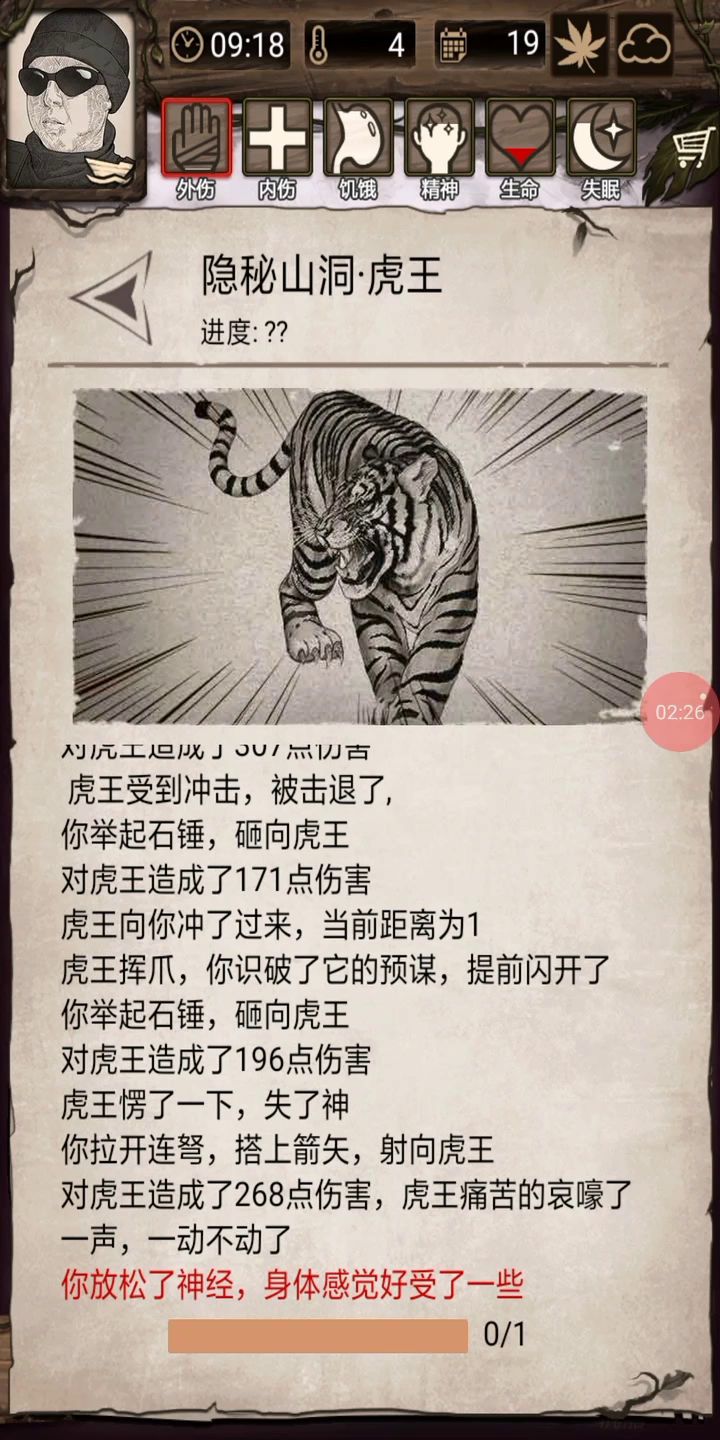 09:18
4
19
外伤
内伤
饥饿
精神
生命
失眠
隐秘山洞·虎王
进度: ??
02:26
对虎王造成了307点伤害
虎王受到冲击，被击退了,
你举起石锤，砸向虎王
对虎王造成了171点伤害
虎王向你冲了过来，当前距离为1
虎王挥爪，你识破了它的预谋，提前闪开了
你举起石锤，砸向虎王
对虎王造成了196点伤害
虎王愣了一下，失了神
你拉开连弩，搭上箭矢，射向虎王
对虎王造成了268点伤害，虎王痛苦的哀嚎了
一声，一动不动了
你放松了神经，身体感觉好受了一些
0/1